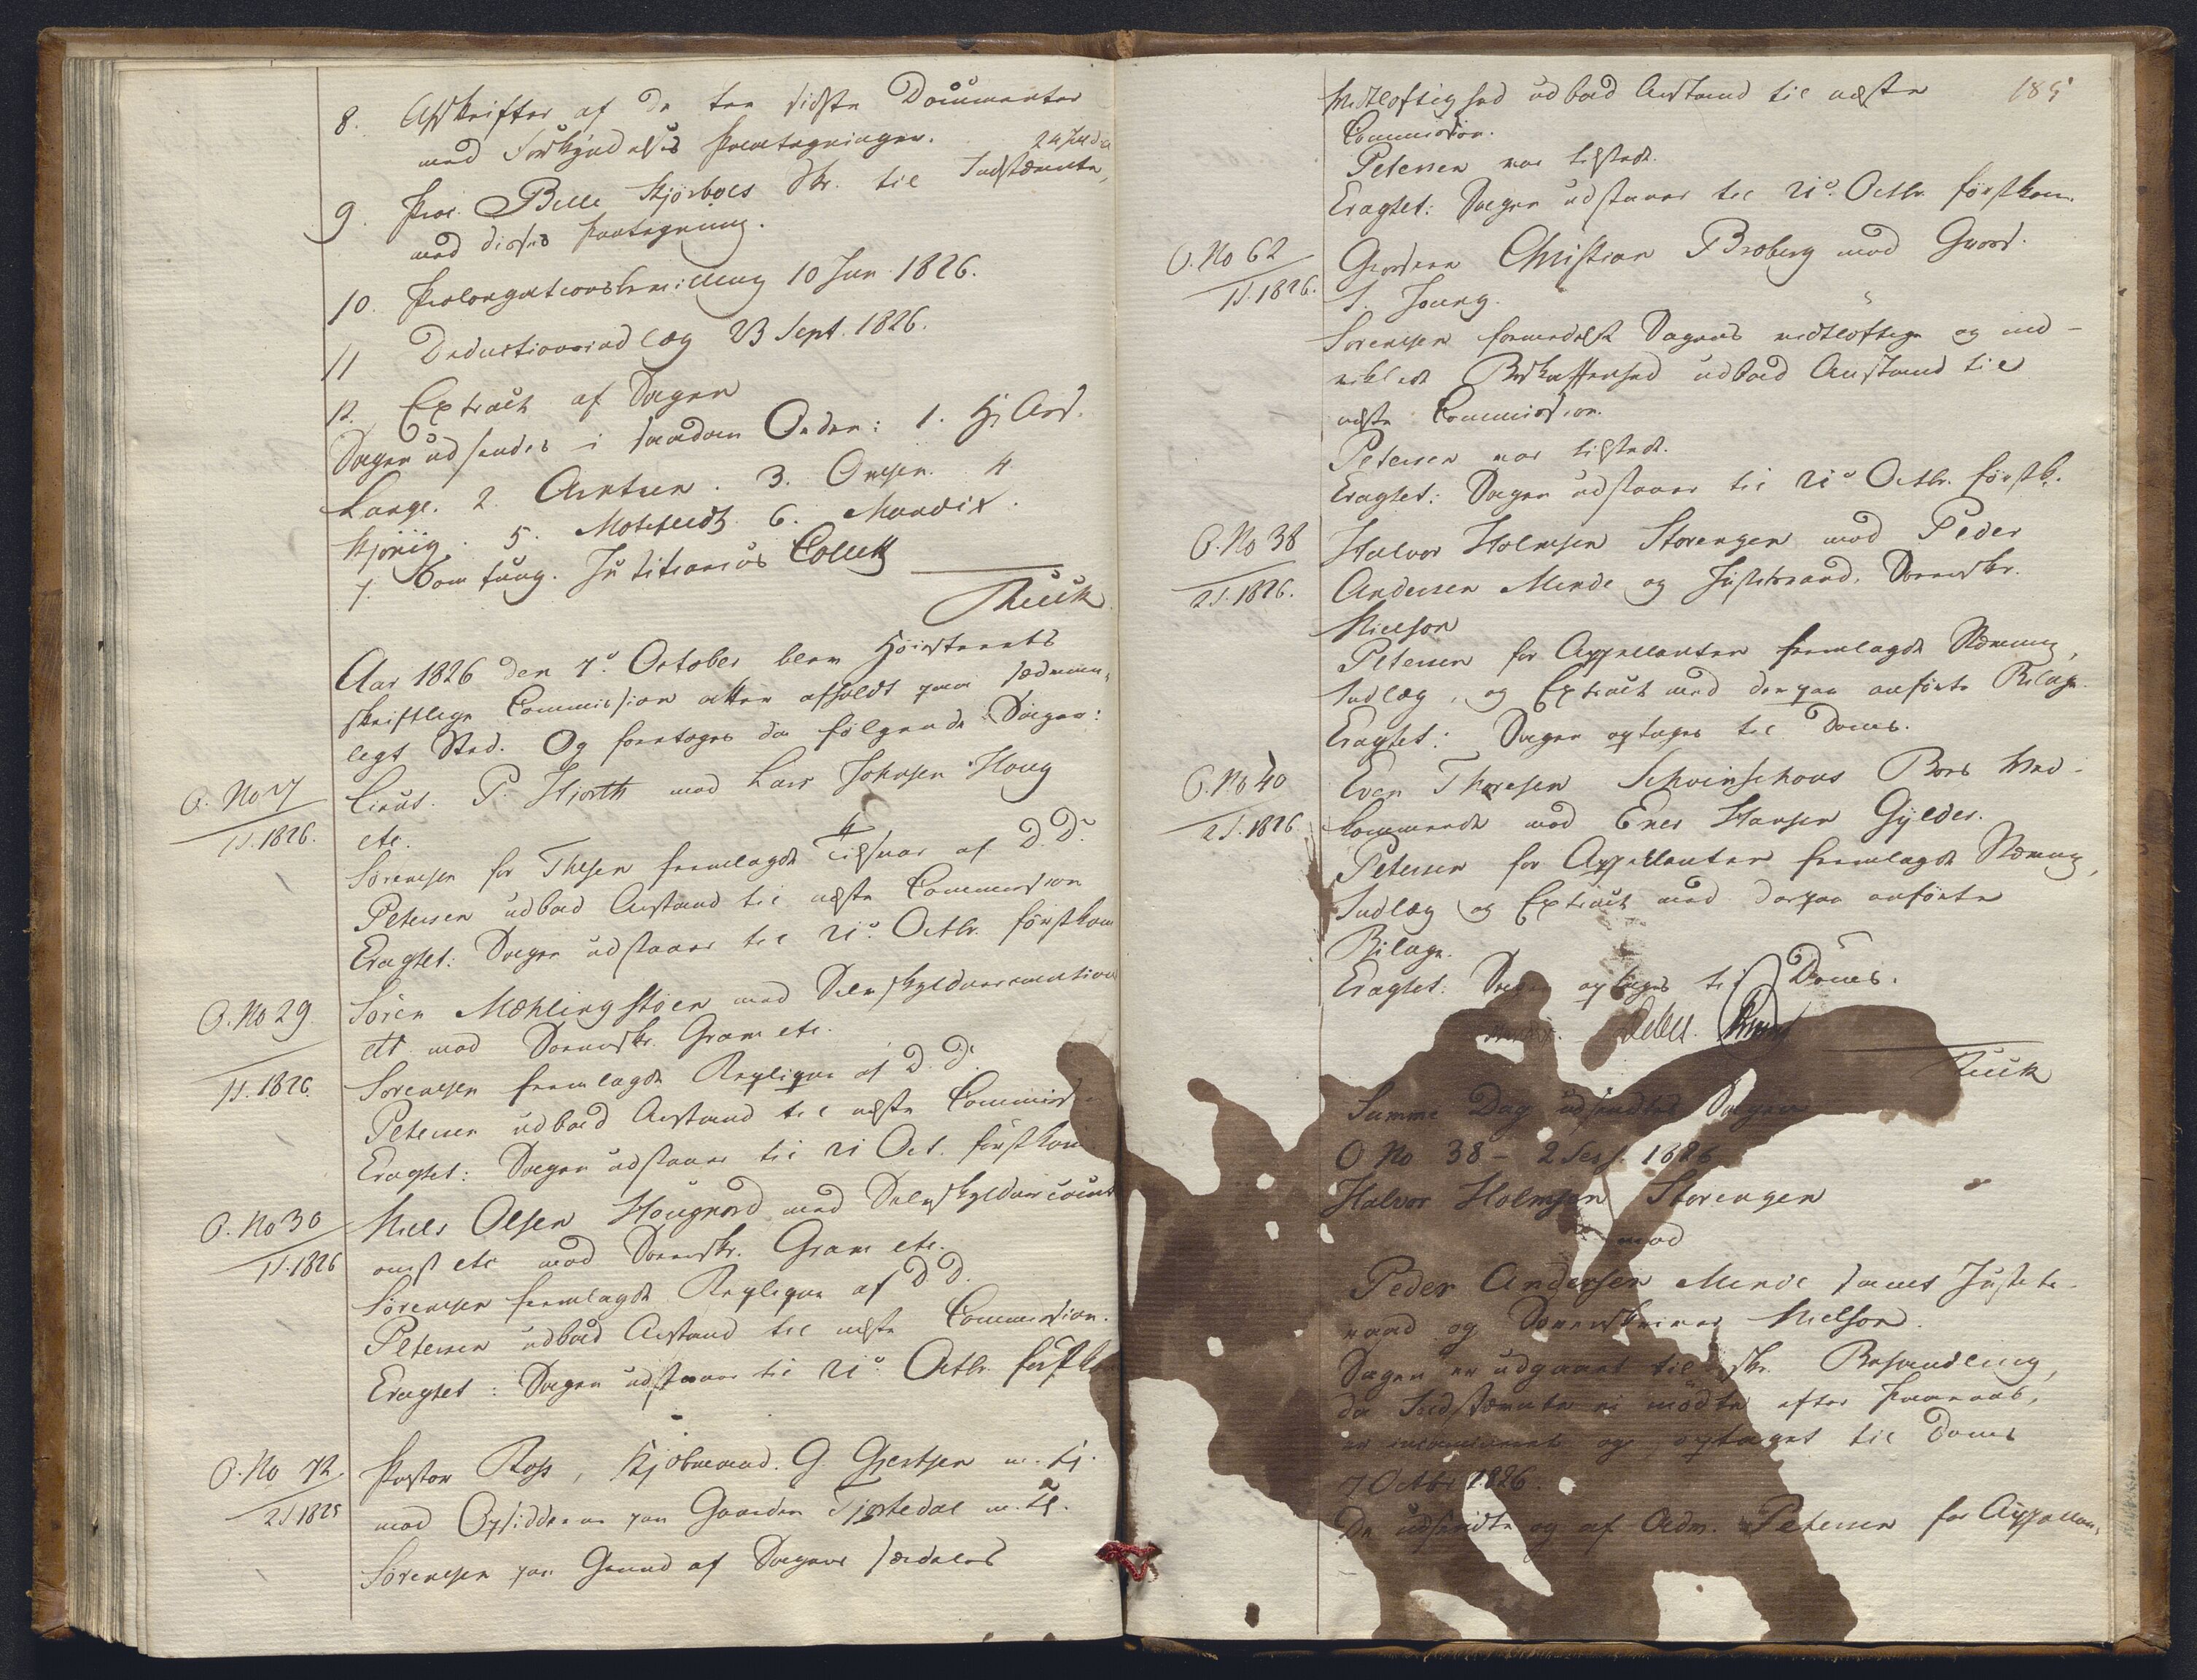 8. Afskrifter af de tre sidste Documenter
med Forkyndelses Paategninger.
9. Proc. Bille Kjørboes Skr. til Indstævnte,
med disses Paategning.
10. Prolongationsbevilling 10 Jun 1826.
11 Deductionsindlæg 23 Sept. 1826.
12. Extract af Sagen
Sagen udsendes i saadan Orden: 1. Hr Ass.
Lange. 2. Arntzen. 3. Omsen. 4
5. Motzfeldt. 6. Mandix.
7. Justitiarius Collett
Ruck
Aar 1826 den 7de October blev Høiesterets
skriftlige Commission atter afholdt paa sædvan-
ligt Sted. Og foretoges da følgende Sager:
O. No 7
1 S. 1826.
Lieut. P. Hjorth mod Lars Johnsen Houg
etc.
Sørensen for Thesen fremlagde Tilsvar af D. D.
Petersen udbad Anstand til næste Commission
Eragtet: Sagen udstaaer til 21de Octbr. førstkom
O. No 29
1 S. 1826.
Søren Mæhlingstøen med
etc mod Sorenskr. Gram etc.
Sørensen fremlagde Replique af D. D.
Petersen udbad Anstand til næste Commission
Eragtet: Sagen udstaaer til 21 Oct. førstkom
O. No 30
1 S. 1826
Niels Olsen Hougnord med
etc mod Sorenskr. Gram etc.
Sørensen fremlagde Replique af D D.
Petersen udbad Anstand til næste Commission.
Eragtet: Sagen udstaaer til 21de Octbr. førstkom
O. No 72.
2 S 1825
Pastor Ross, Kjøbmand G. Giertsen m. fl.
mod Opsidderne paa Gaarden Tjøstedal m. fl.
Sørensen paa Grund af Sagens særdeles
185
Vidtløftighed udbad Anstand til næste
Commission.
Petersen var tilstede.
Eragtet: Sagen udstaaer til 21de Octbr førstkom.
O. No 62
1 S. 1826.
Christian Broberg mod
S. Joung.
Sørensen formedelst Sagens vidtløftige og ind-
viklede Beskaffenhed udbad Anstand til
næste Commission.
Petersen var tilstede.
Eragtet: Sagen udstaaer til 21de Octbr. førstk.
O. No 38
2 S. 1826.
Halvor Holmsen Storengen mod Peder
Andersen Minde og Justitsraad, Sorenskr.
Nielson
Petersen for Appellanten fremlagde Stævning,
Indlæg, og Extract med derpaa anførte Bilage.
Eragtet: Sagen optages til Doms.
O. No 40
2 S. 1826
Even Thoresen Schoinschous Boes Ved-
kommende mod Ener Hansen Gylder.
Petersen for Appellanten fremlagde Stævning,
Indlæg og Extract med derpaa anførte
Bilage.
Eragtet: Sagen optages til Doms.
Debes.
Ruck
Samme Dag udsendtes Sagen
O No 38 – 2 Sess. 1826
Halvor Holmsen Storengen
mod
Peder Andersen Minde samt Justits-
raad og Sorenskriver Nielson.
Sagen er udgaaet til skr. Behandling,
da Indstævnte ei mødte efter Paaraab,
er incamineret og optaget til Doms
7 Octbr 1826.
De udsendte og af Adv. Petersen for Appellan-